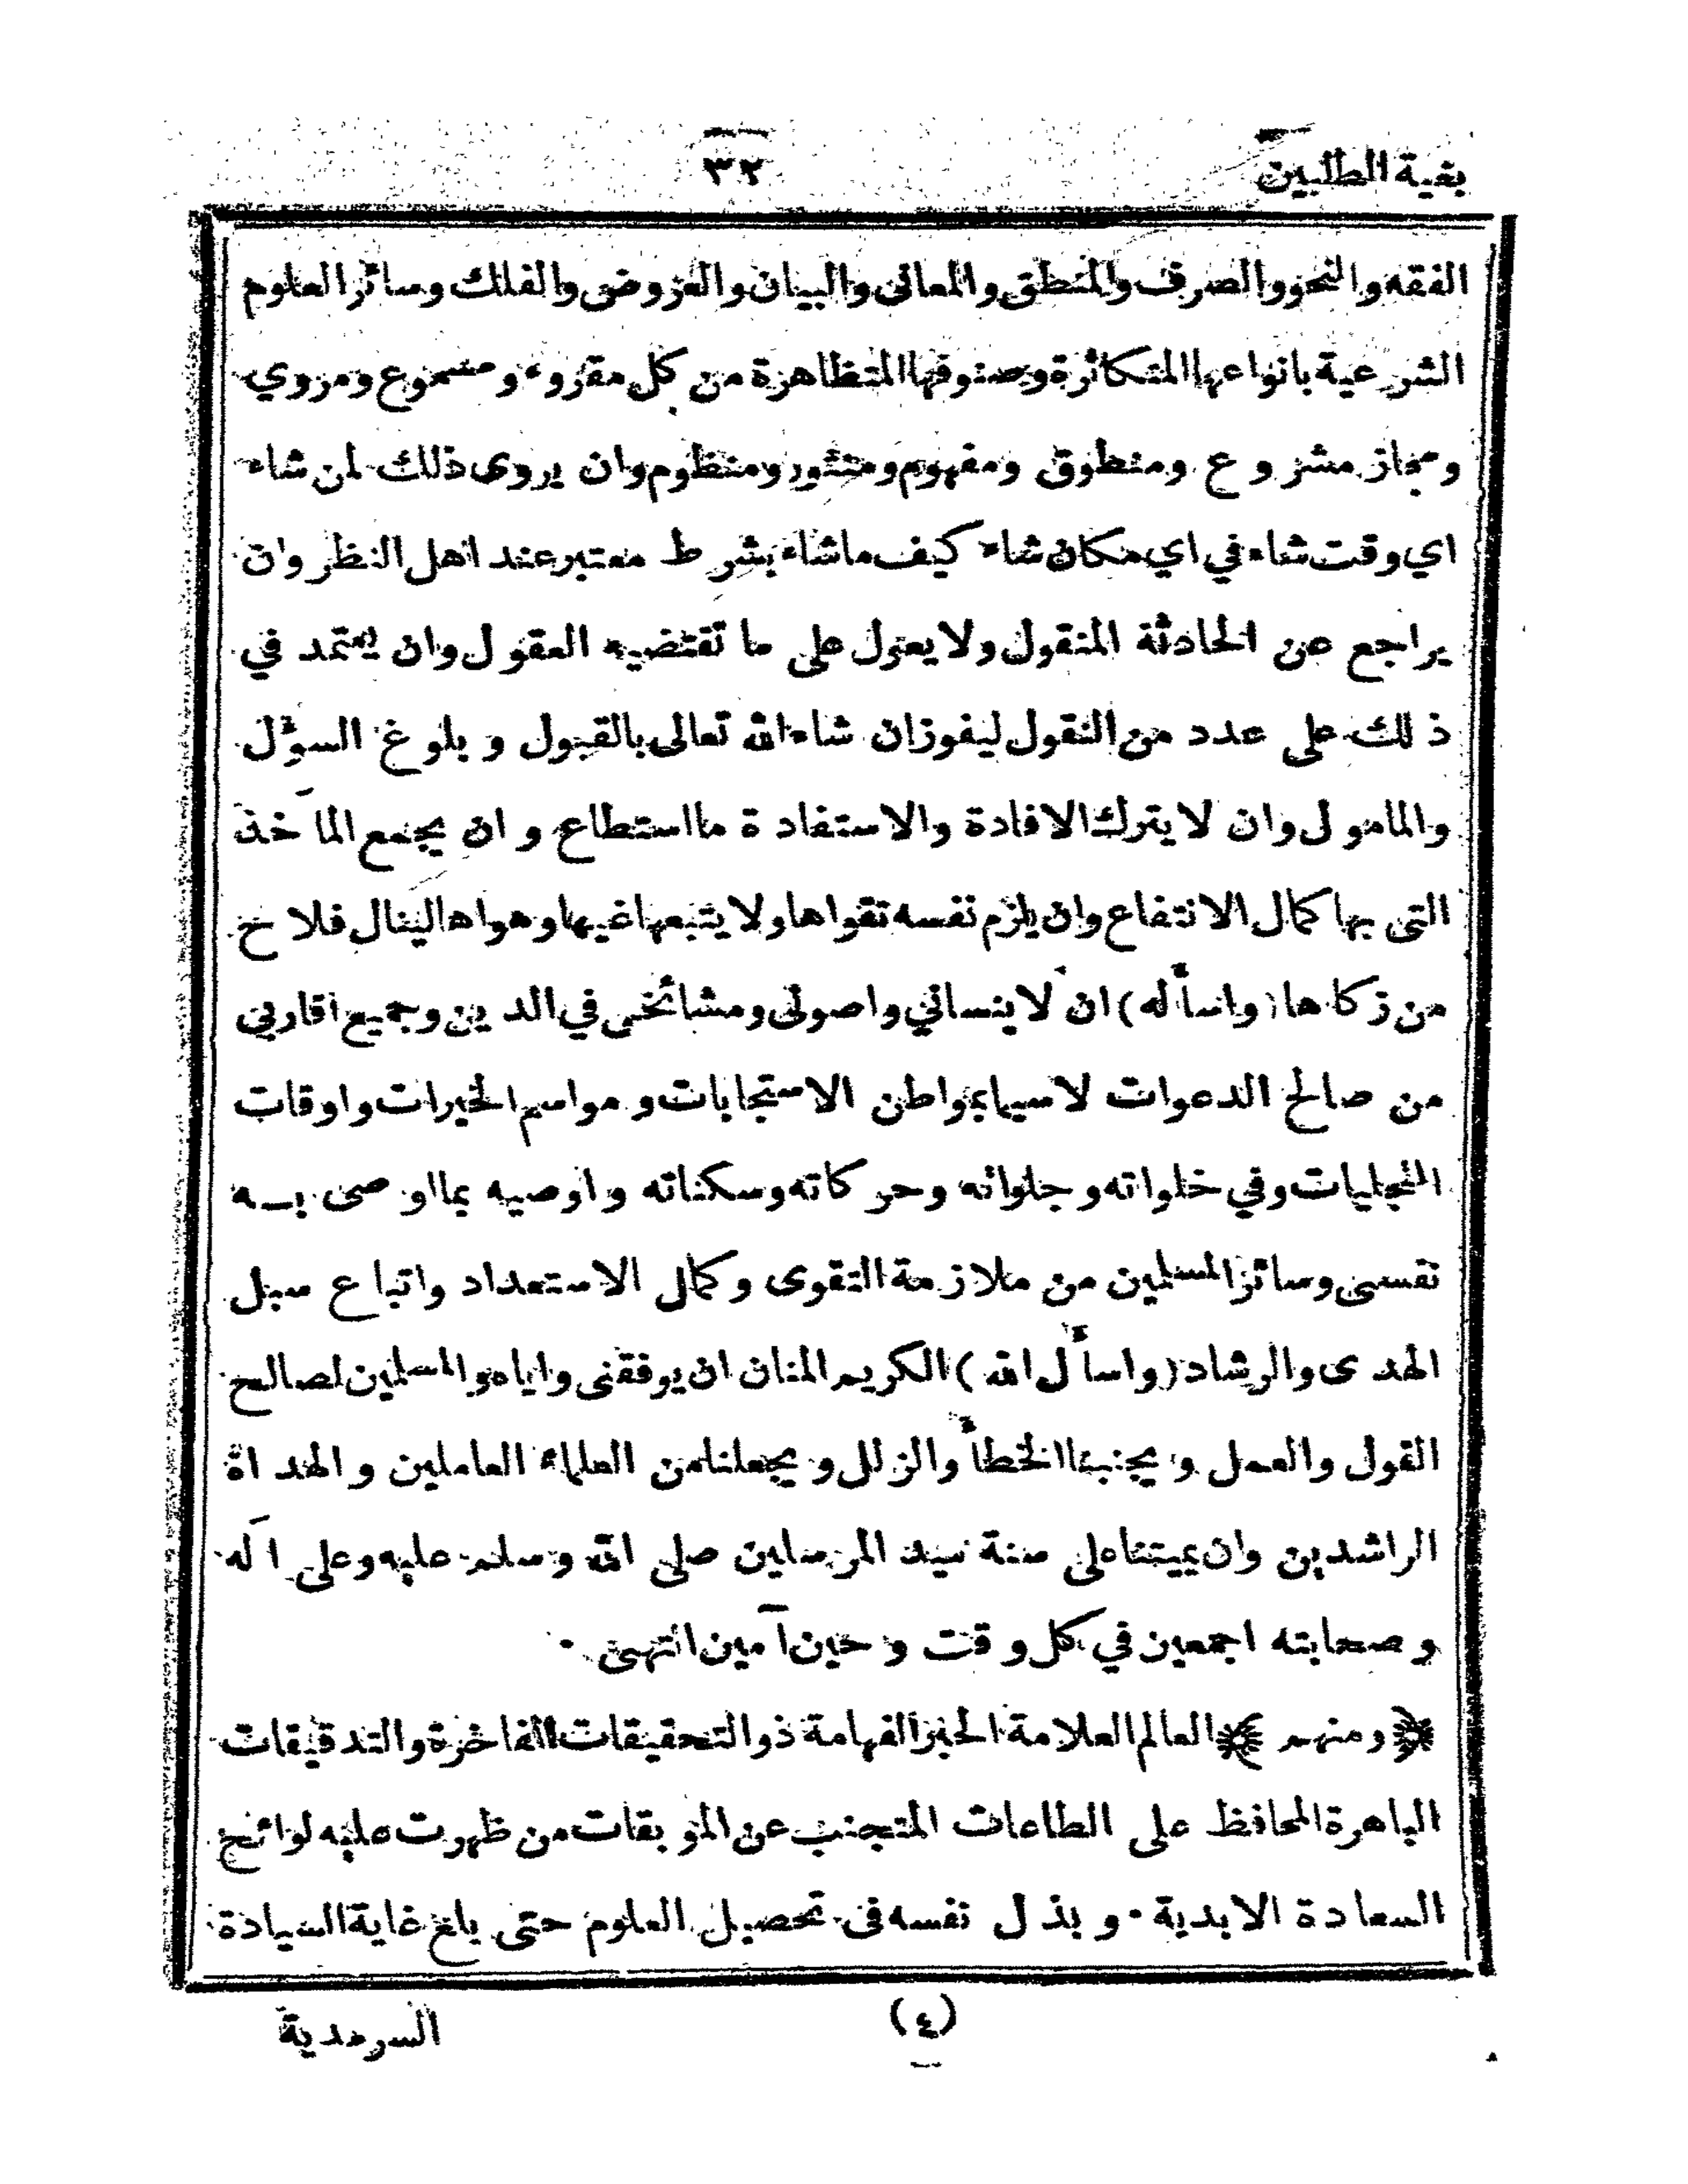 بغية الطلبين
٣٢
الفقه والنحو والصرف والمنطق والمعانى والبيان والعروض والفلك وسائر العلوم
الشرعية بانواعها المتكاثرة وبصنوفها المتظاهرة من كل مقروء ومسموع ومروي
ومجاز مشروع ومنطوق ومفهوم ومنثور ومنظوم وان يروى ذلك لمن شاء
اي وقت شاء في اي مكان شاء كيف ما شاء بشرط معتبر عند اهل النظر وان
يراجع عن الحادثة المنقول ولا يعول على ما تقتضيه العقول وان يعتمد في
ذلك على عدد من النقول ليفوز ان شاء الله تعالى بالقبول و بلوغ السوٴل
والمامول وان لا يترك الافادة والاستفادة ما استطاع و ان يجمع المآخذ
التى بها كمال الانتفاع وان يلزم نفسه تقواها ولا يتبعها غيها وهواها لينال فلاح
من زكاها (واسأله) ان لا ينساني واصولى ومشائخى في الدين وجميع اقاربي
من صالح الدعوات لا سيما بمواطن الاستجابات و مواسم الخيرات واوقات
التجليات وفي خلواته و جلواته وحركاته وسكناته واوصيه بما اوصى بــه
نفسى وسائر المسلمين من ملازمة التقوى وكمال الاستعداد واتباع سبل
الهدى والرشاد (واسأل الله) الكريم المنان ان يوفقنى واياه والمسلمين لصالح
القول والعمل و يجنبنا الخطأ والزلل و يجعلنا من العلماء العاملين و الهداة
الراشدين وان يميتنا على سنة سيد المرسلين صلى الله وسلم عليه وعلى آله
و صحابته اجمعين في كل وقت و حين آمين انتهى ·
﴿ ومنهم ﴾ العالم العلامة الحبر الفهامة ذو التحقيقات الفاخرة والتدقيقات
الباهرة المحافظ على الطاعات المتجنب عن الموبقات من ظهرت عليه لوائح
السعادة الابدية · و بذل نفسه فى تحصيل العلوم حتى بلغ غاية السيادة
(٤)
السرمدية